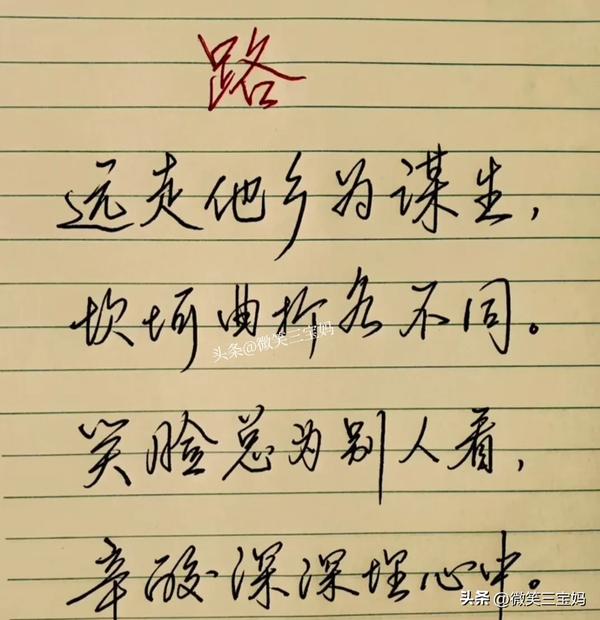 路
远走他乡为谋生，
坎坷曲折各不同。
头条@微笑三宝妈
笑脸总为别人看，
辛酸深深埋心中。
头条 @微笑三宝妈